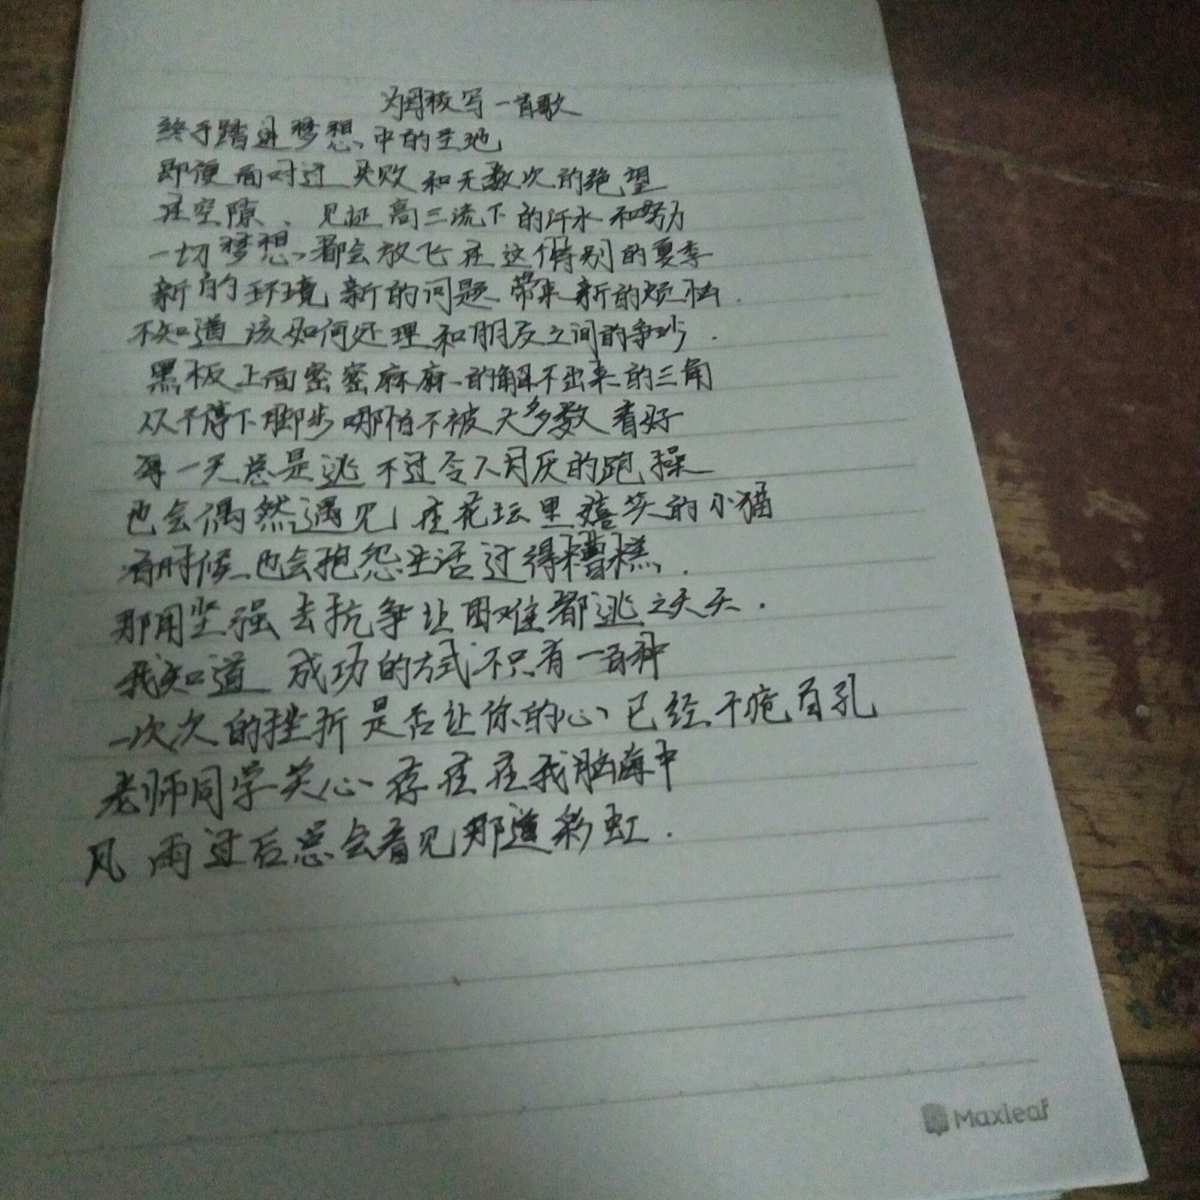 为母校写一首歌
终于踏进梦想中的圣地
即便面对过失败和无数次的绝望
在空隙、见证高三流下的汗水和努力
一切梦想、都会放飞在这个特别的夏季
新的环境新的问题带来新的烦恼.
不知道该如何处理和朋友之间的争吵.
黑板上面密密麻麻的解不出来的三角
从不停下脚步哪怕不被大多数看好
每一天总是逃不过令人讨厌的跑操
也会偶然遇见在花坛里嬉笑的小猫
有时候也会抱怨生活过得糟糕.
那用坚强去抗争让困难都逃之夭夭.
我知道 成功的方式不只有一百种
一次次的挫折是否让你的心已经千疮百孔
老师同学关心存在在我脑海中
风雨过后总会看见那道彩虹.
Maxleaf